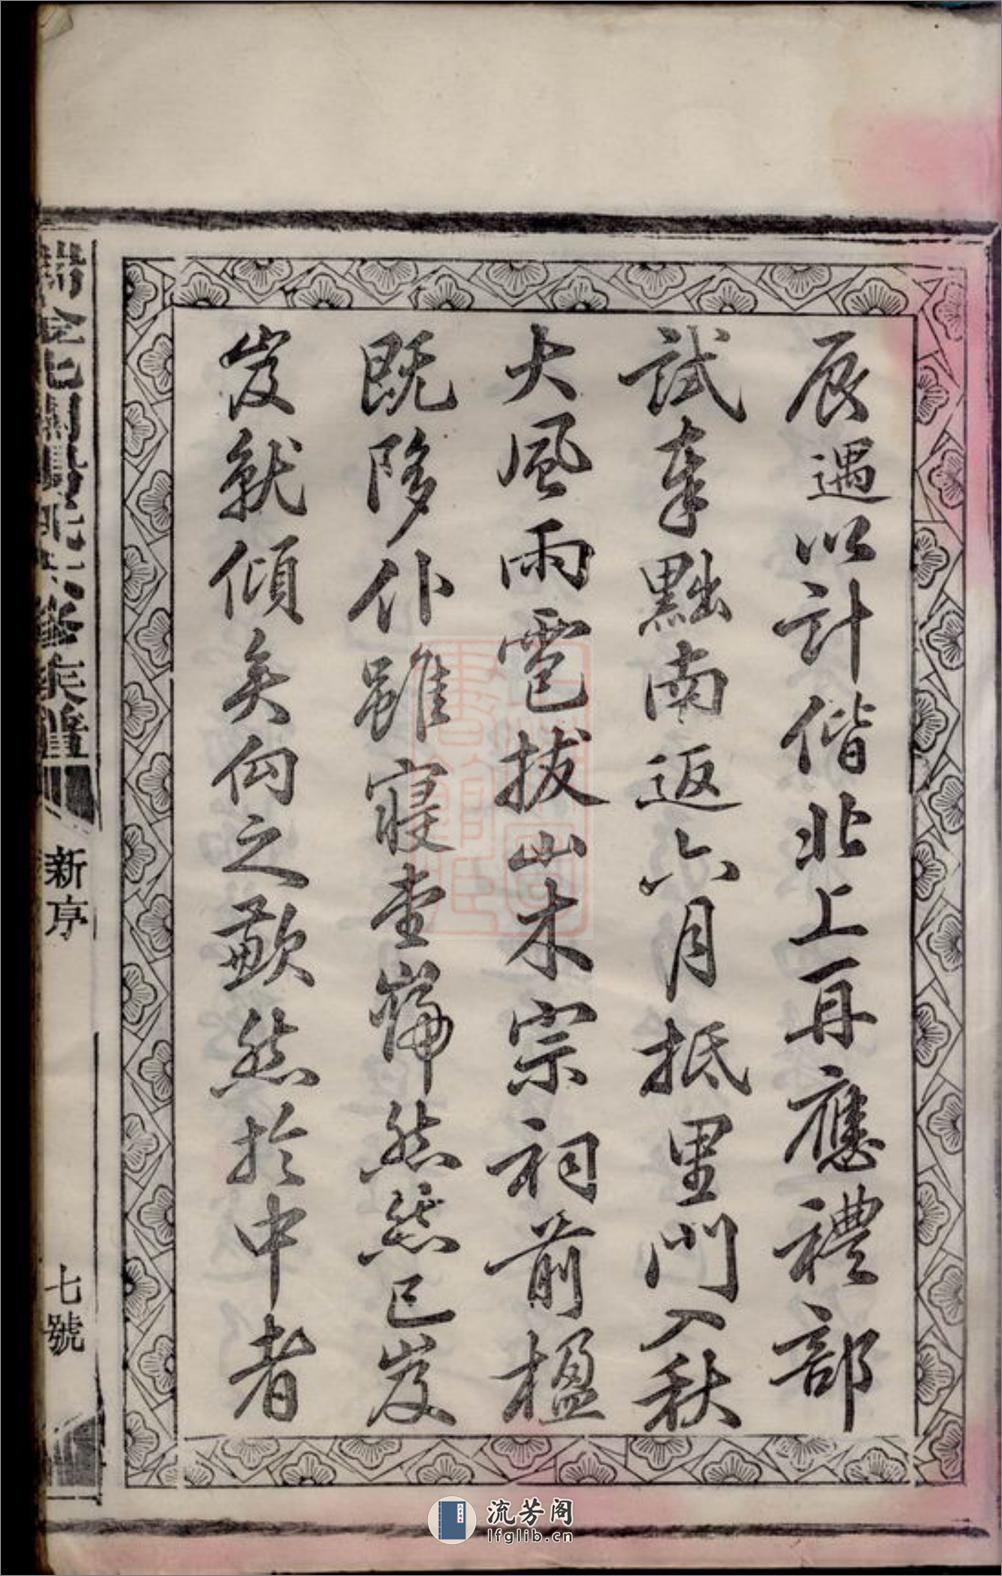 辰遇以計偕北上再應禮部
試奉黜南返六月抵里門入秋
大風雨雹拔山木宗祠前楹
既陊仆雖寢堂巋然然已岌
岌就傾矣向之歉然於中者
六修族譜
新序
七號
流芳阁
lfglib.cn